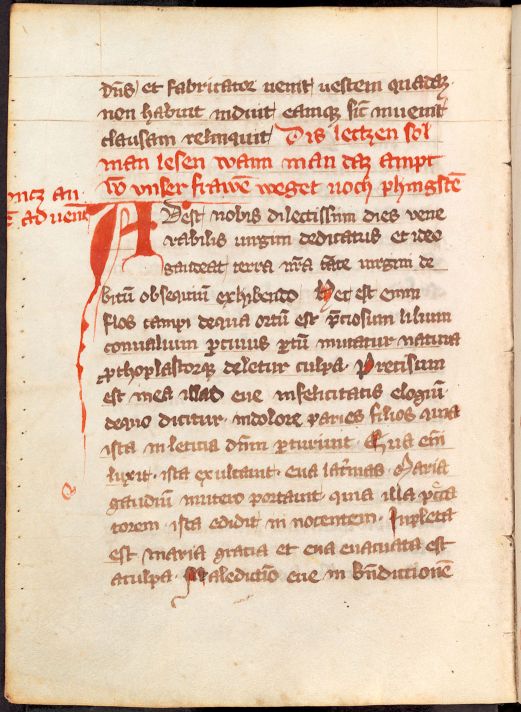 dn̄s et fabricator uenit uestem quadaz
non habuit induit eamq; sic̄ inuenit
clausam relinquit Dis leczen sol
man lesen wann man daz ampt
vō vnser frawē weget noch phingstē
untz an
ē aduent
Adest nobis dilectissim dies vene
rabilis uirgini dedicatus et ideo
gaudeat terra nr̄a sc̄te uirgini de
bitū obsequiū exhibendo hec est enim
flos campi dequa ortū est p̄ciosum lilium
conualium per cuius ꝑtū mutatur natura
ꝓthoplastorꝫ deletur culpa. Precisum
est in ea illud eue infelicitatis elogiū
dequo dicitur. indolore paries filios una
ista in leticia dn̄m ꝑturiuit. Eua em̄
luxit. ista exultauit. eua lacͬimas. Maria
gaudiū in utero portauit quia illa pcͨa
torem. ista edidit in nocentem. Inpleta
est maria gracia et eua euacuata est
aculpa. Maledictio eue in bn̄dictionē